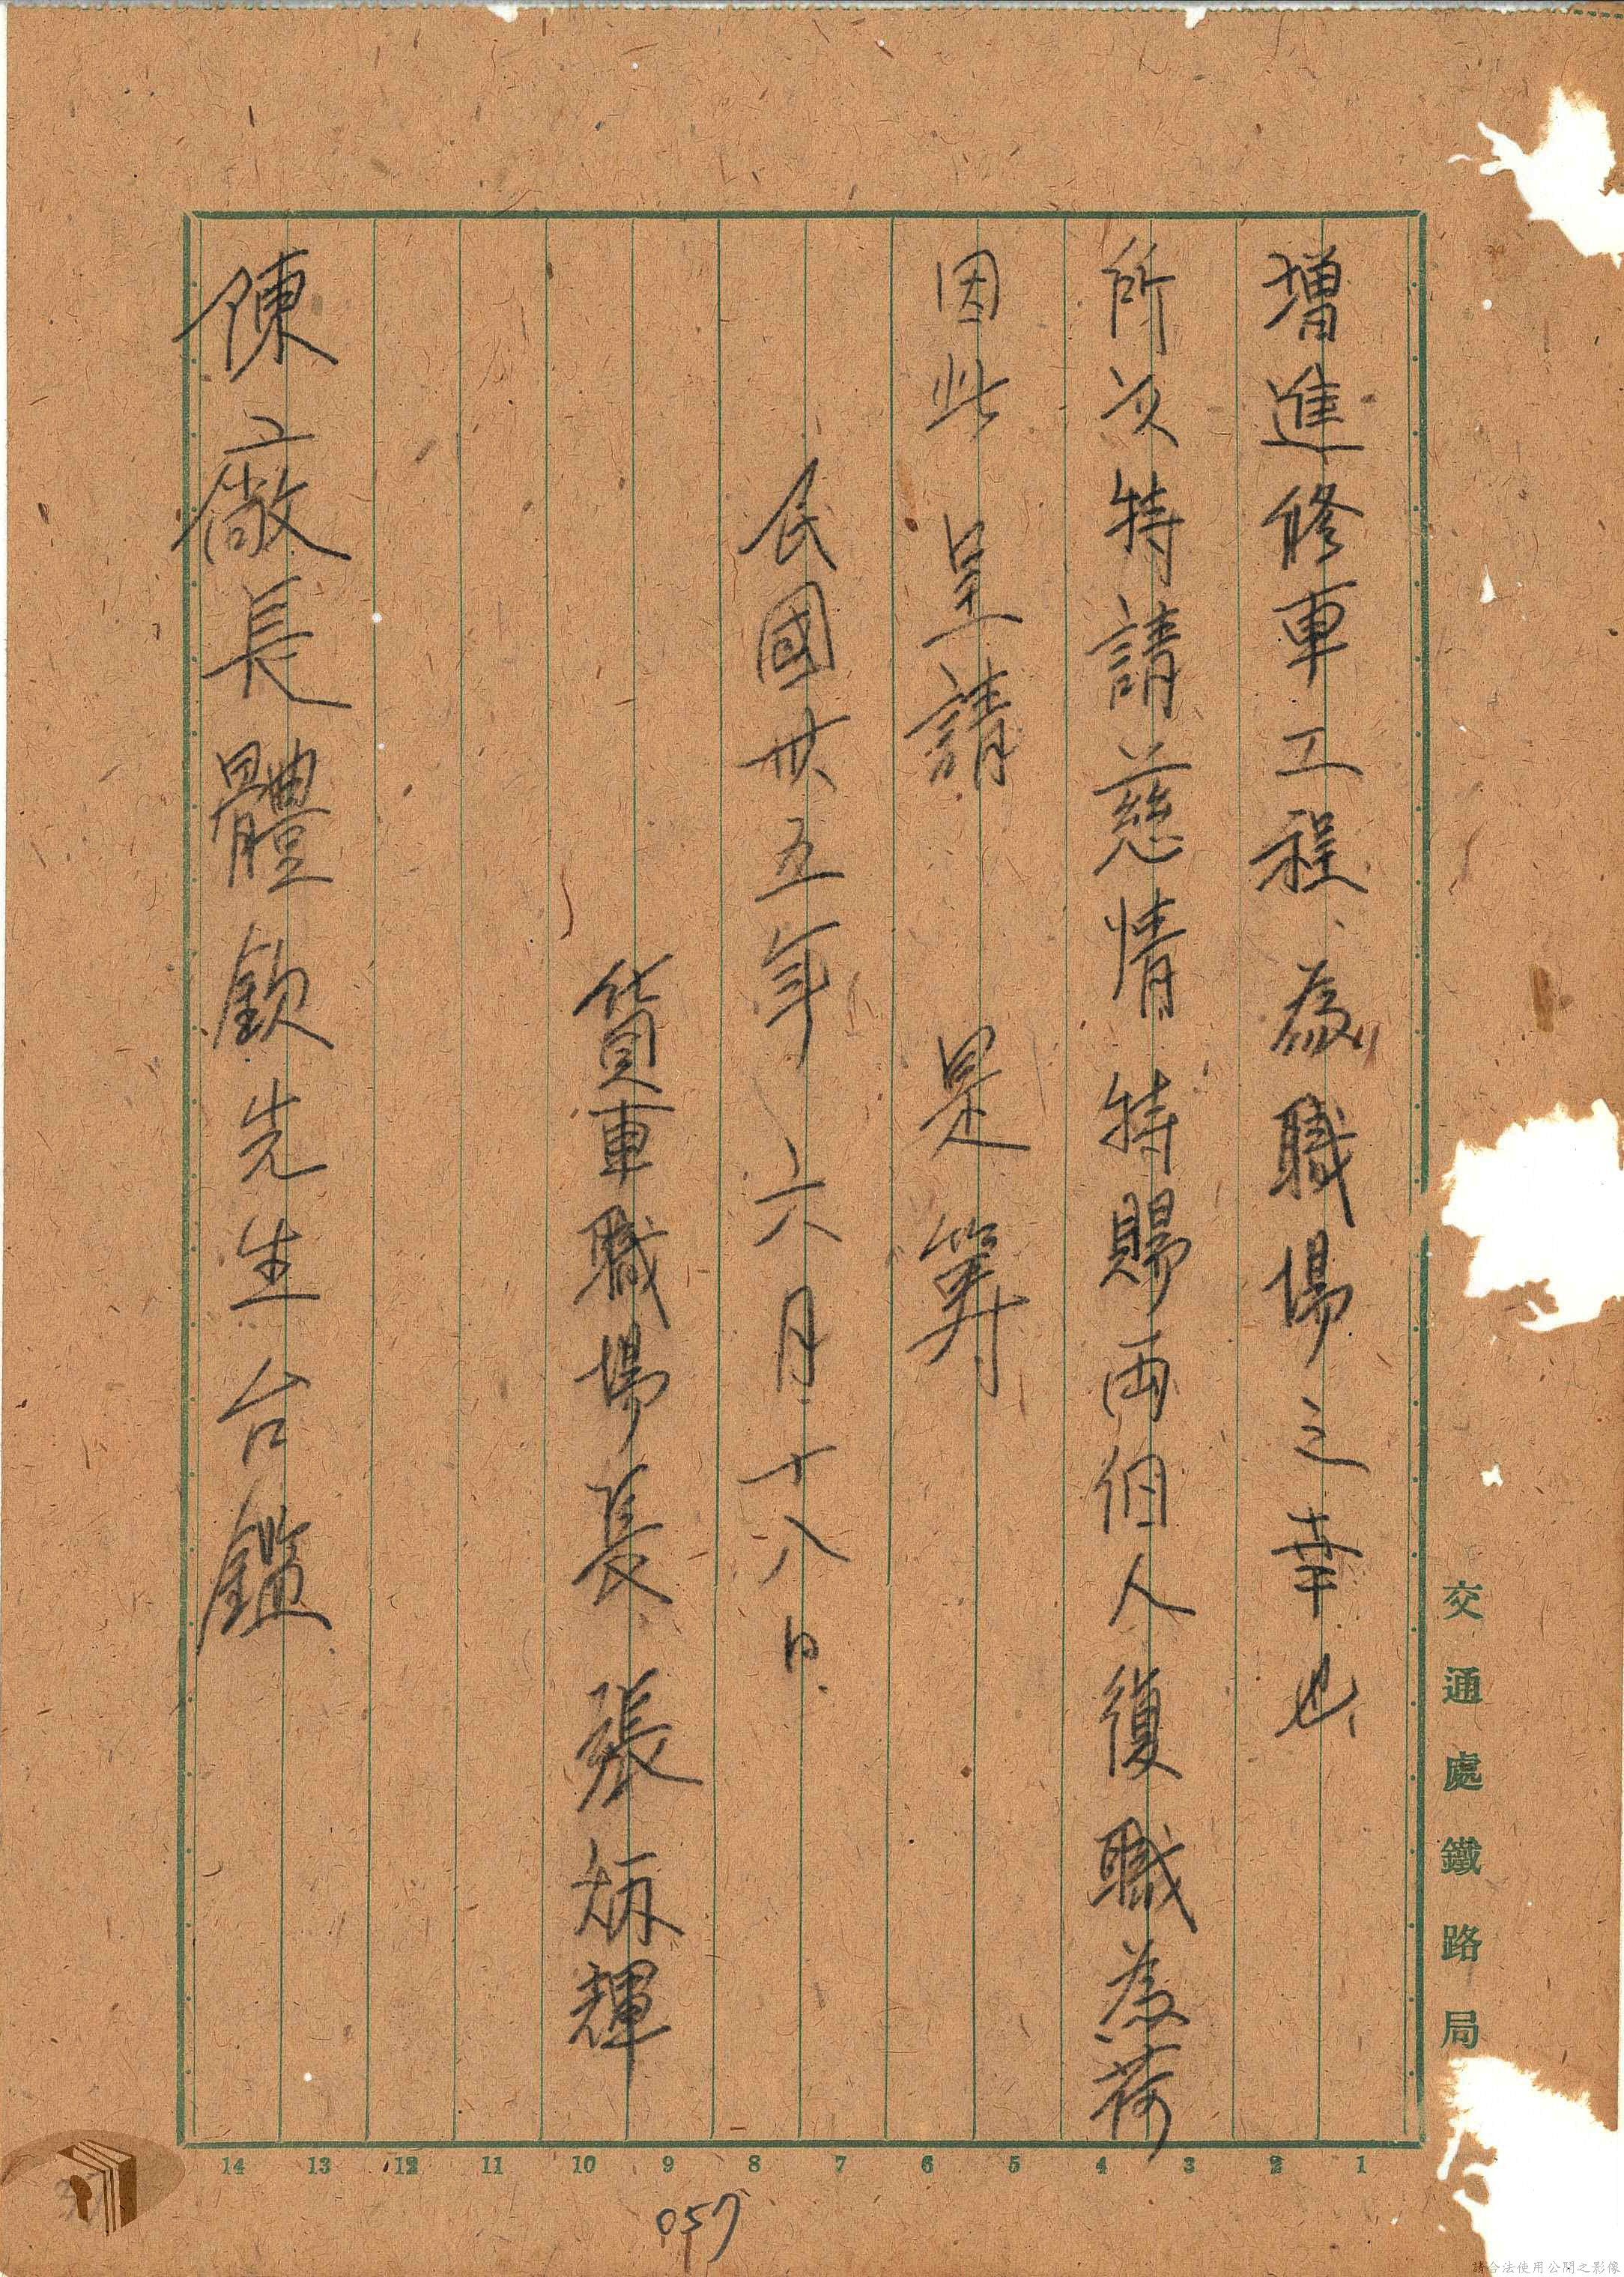 增進修車工程、為職場之幸也、
所以特請慈情特賜両個人復職為荷
因此呈請　是算
民國卅五年六月十八日
貨車職場長　張炳輝
陳廠長體欽先生台鑑
交通處鐵路局
14 13 12 11 10 9 8 7 6 5 4 3 2 1
057
請合法使用公開之影像